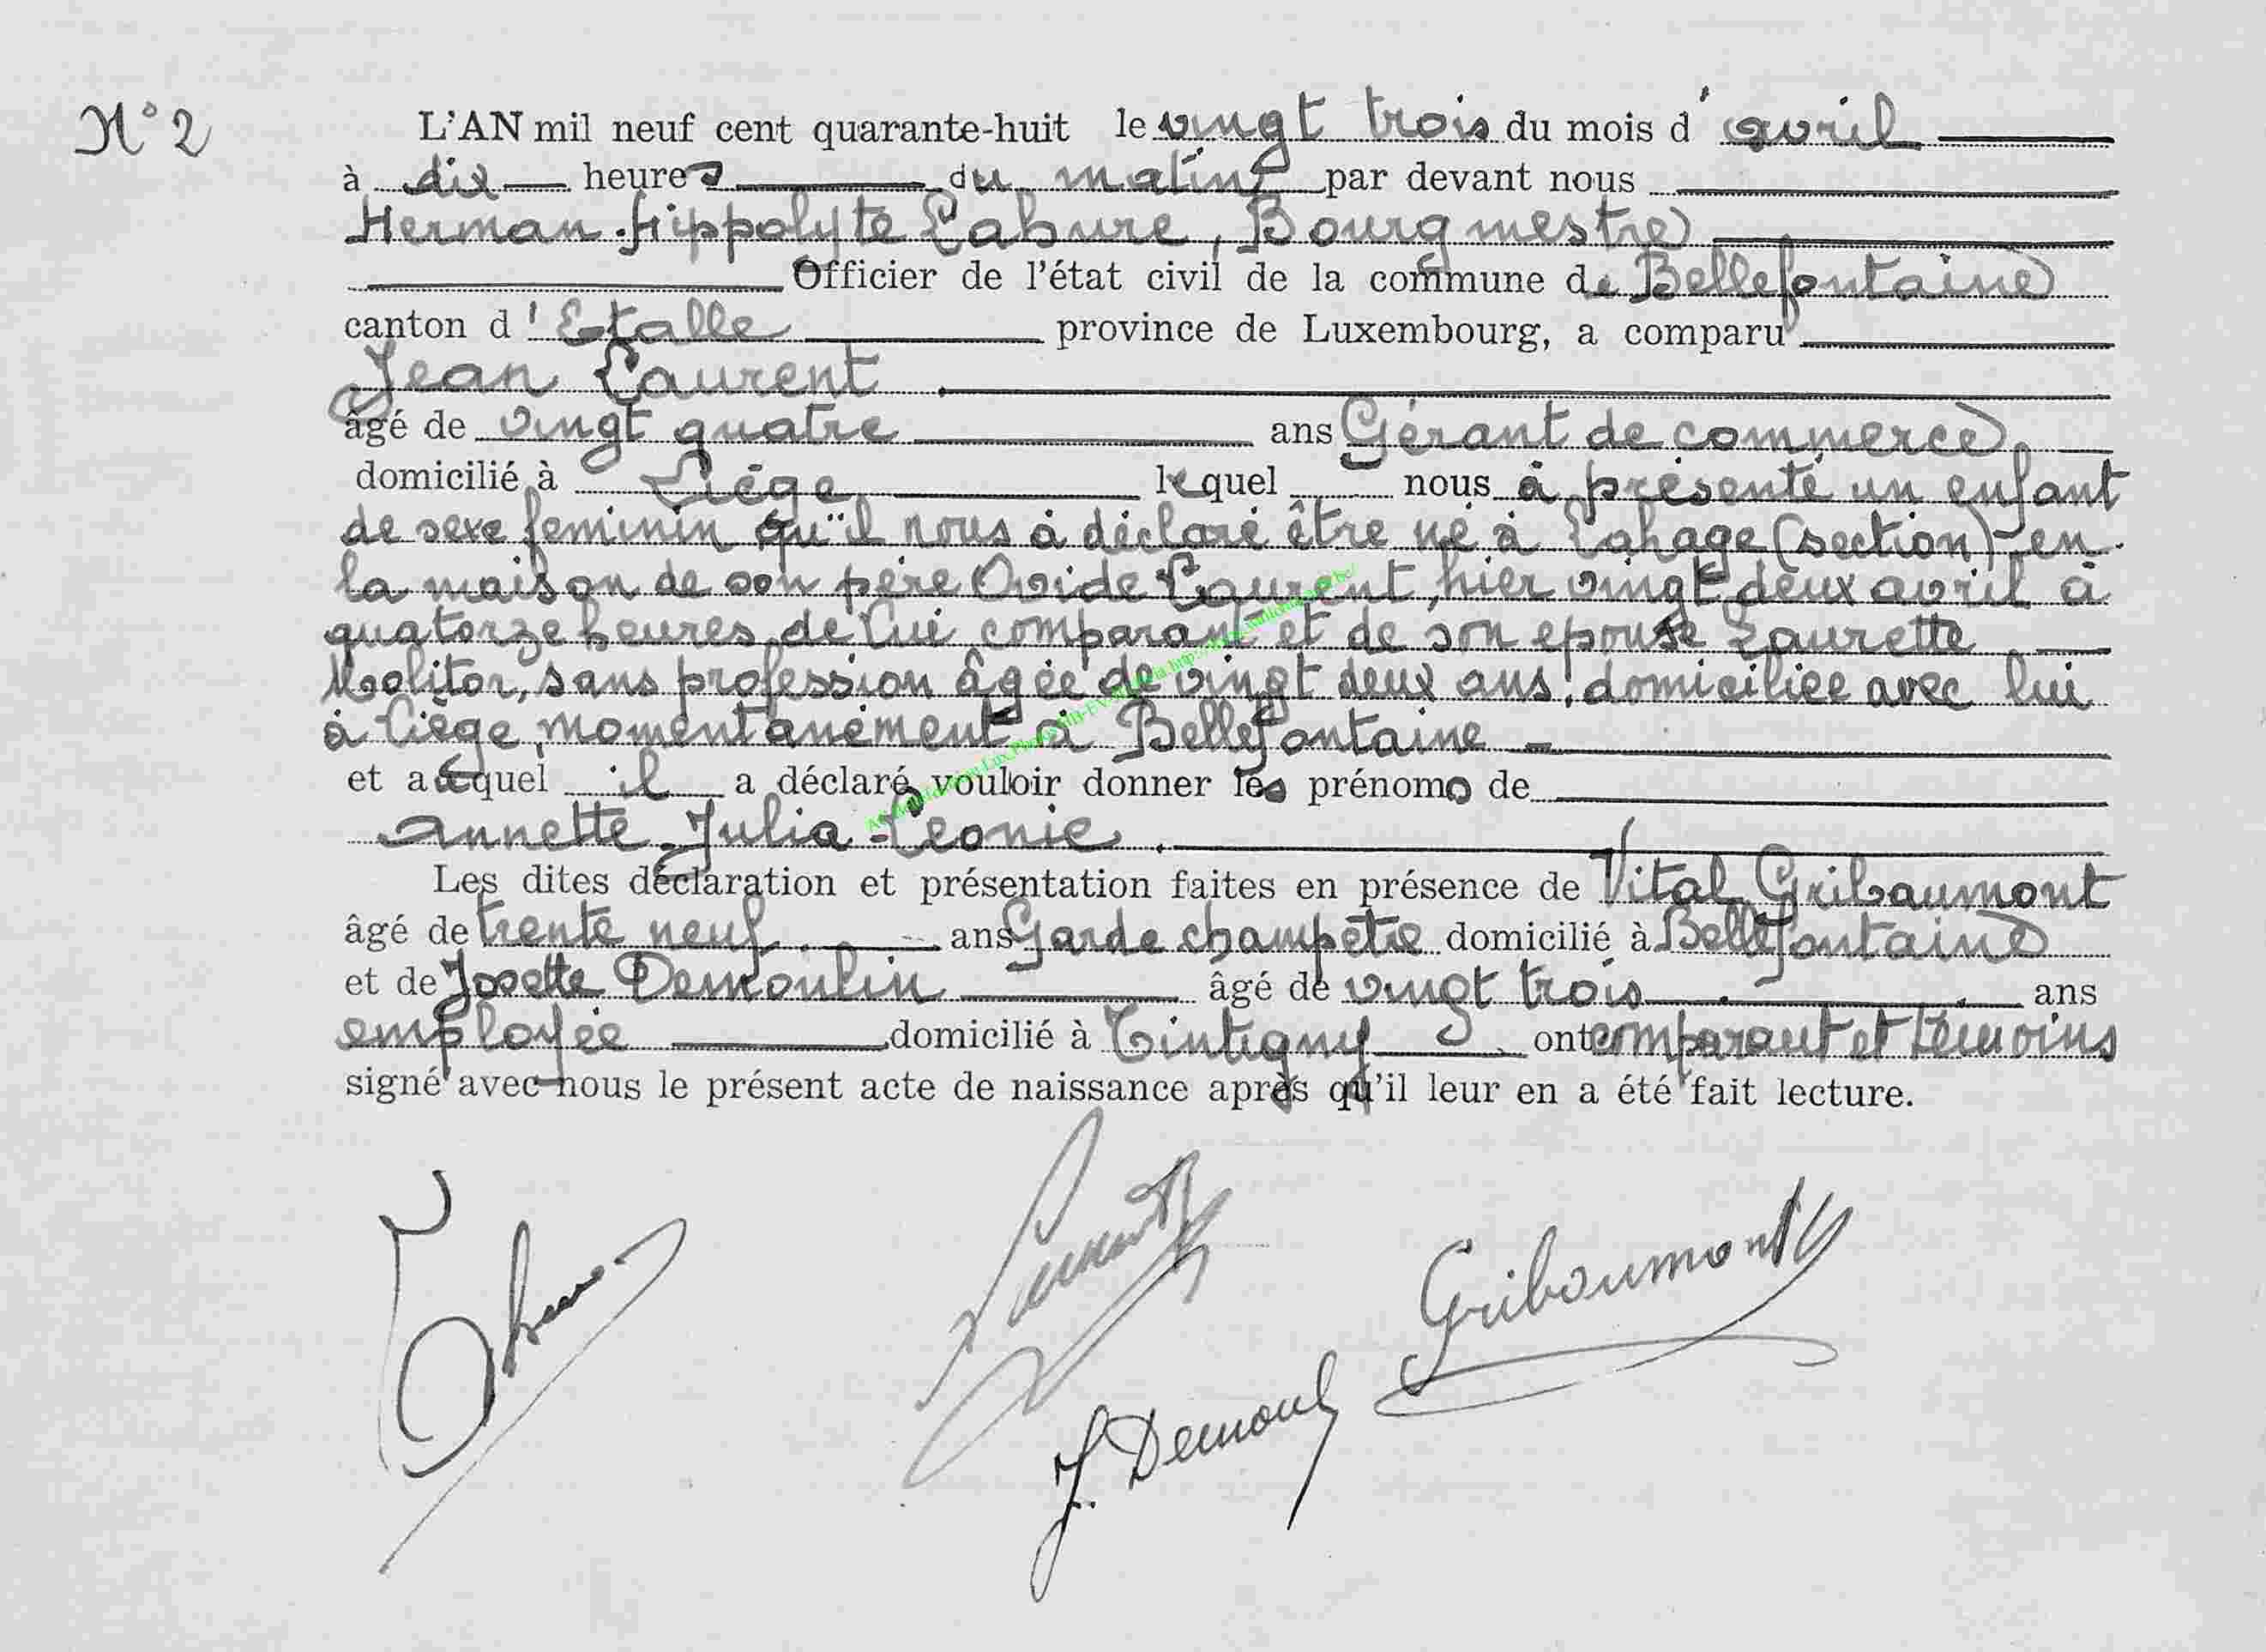 N° 2
L'AN mil neuf cent quarante-huit le vingt trois du mois d'avril
à dix heures du matin par devant nous
Herman-Hippolyte Lahure, Bourgmestre
Officier de l'état civil de la commune de Bellefontaine
canton d'Etalle province de Luxembourg, a comparu
Jean Laurent
âgé de vingt quatre ans Gérant de commerce
domicilié à Liége lequel nous à présenté un enfant
de sexe feminin qu'il nous à déclaré être né à Lahage (section) en
la maison de son père Ovide Laurent, hier vingt deux avril à
quatorze heures, de lui comparant et de son epouse Laurette
Molitor, sans profession âgée de vingt deux ans, domiciliée avec lui
à Liége, momentanément à Bellefontaine
et auquel il a déclaré vouloir donner les prénoms de
Annette-Julia-Leonie.
Les dites déclaration et présentation faites en présence de Vital Gribaumont
âgé de trente neuf ans Garde champetre domicilié à Bellefontaine
et de Josette Demoulin âgé de vingt trois ans
employée domicilié à Tintigny ont comparant et temoins
signé avec nous le présent acte de naissance après qu'il leur en a été fait lecture.
Laurent
Gribaumont
J. Demoul